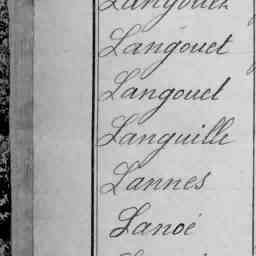 Langouet
Langouet
Languille
Lannes
Lanoé